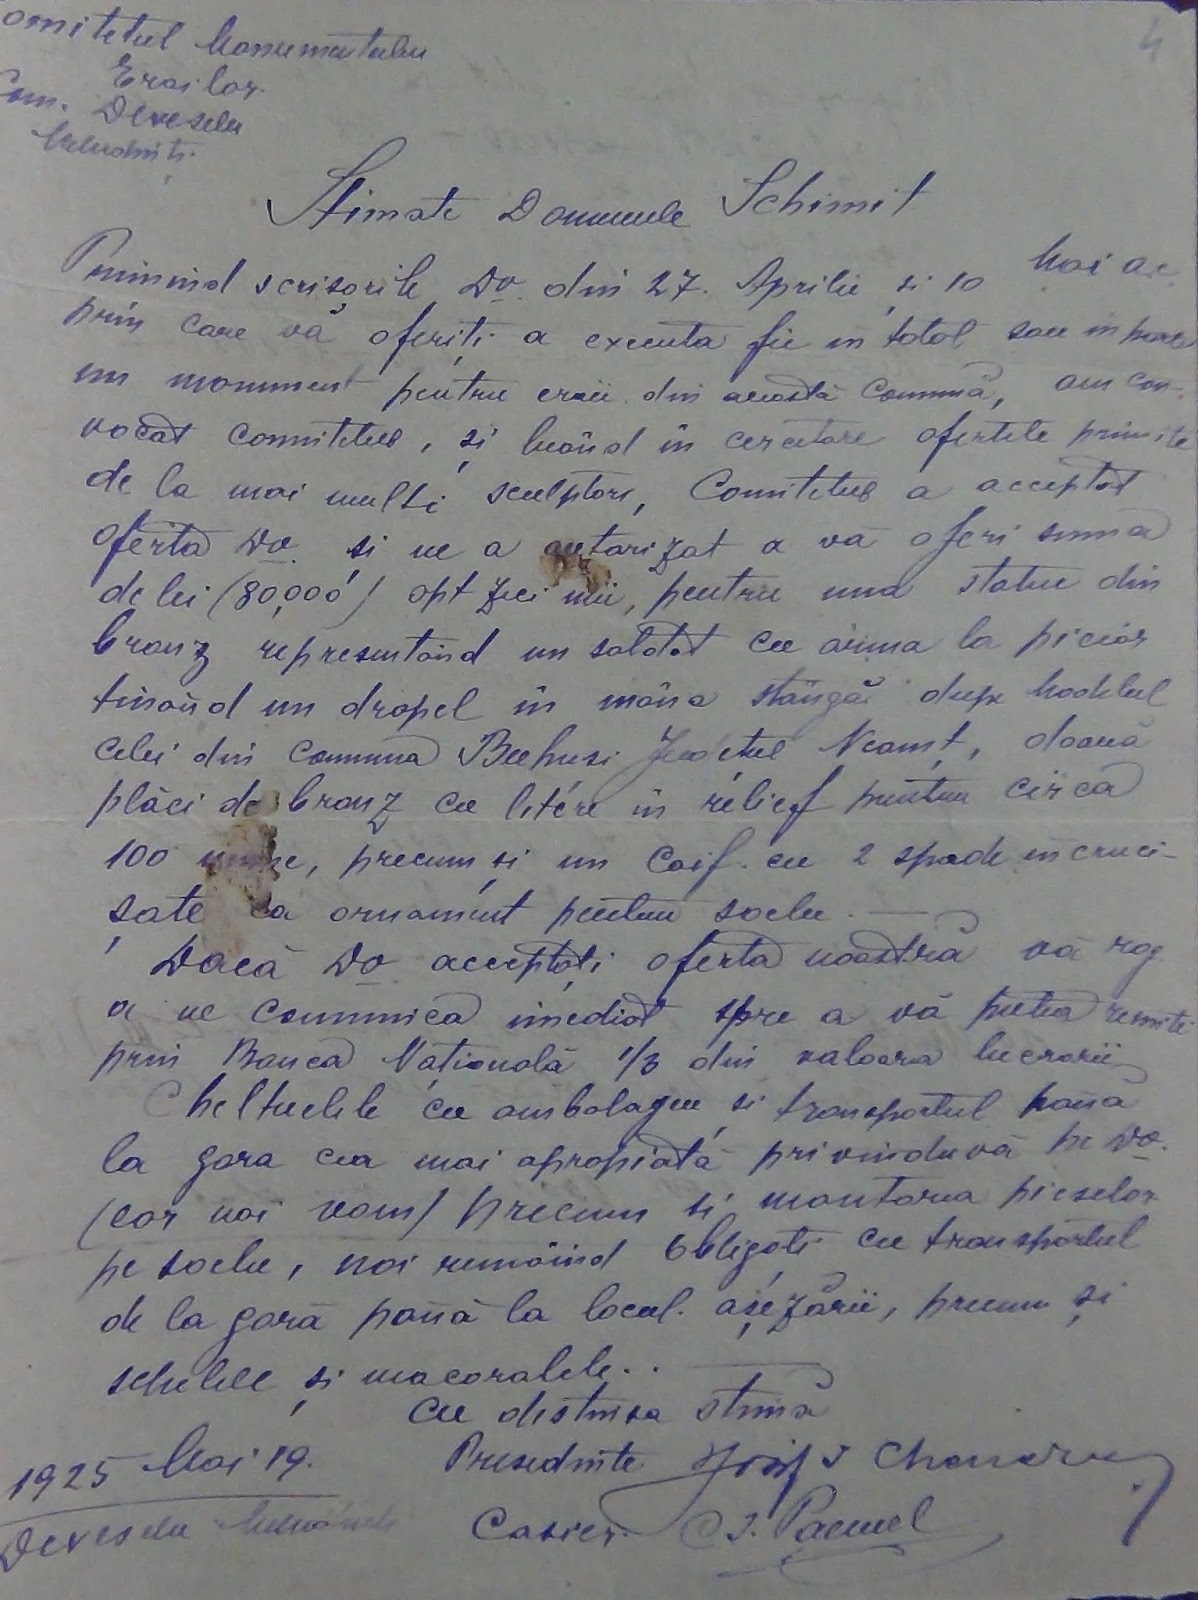 4
omitetul Monumentului
Eroilor
Com. Deveselu
Mehedinți
Stimate Domnule Schimit
Primind scrisorile Dv. din 27. Aprilie și 10 Mai ac.
prin care vă oferiți a executa fie in total sau in parte
un monument pentru eroii din această Comună, am con-
vocat comitetul, și luând în cercetare ofertele primite
de la mai mulți sculptori, Comitetul a acceptat
oferta Dv. și ne a autorizat a vă oferi suma
de lei (80,000) opt zeci mii, pentru una statue din
bronz represintând un soldat cu arma la picior
tinând un drapel în mâna stângă după Modelul
celei din comuna Buhusi Județul Neamț, două
plăci de bronz cu litere în relief pentru circa
100 nume, precum și un Coif cu 2 spade incruci-
șate ca ornament pentru soclu.
Dacă Dv. acceptați oferta noastră vă rog
a ne comunica imediat spre a vă putea remite
prin Banca Națională 1/3 din valoarea lucrării
Cheltuelile cu ambalagiu și transportul până
la gara cea mai apropiată privinduvă pe Dv.
precum și montarea pieselor
pe soclu, noi rămâind obligați cu transportul
de la gară până la locul așezării, precum și
schelele și macaralele..
Cu distinsa stimă
Presedinte Iosif I
1925 Mai 19.
Casier. C I.
Deveselu Mehedinți